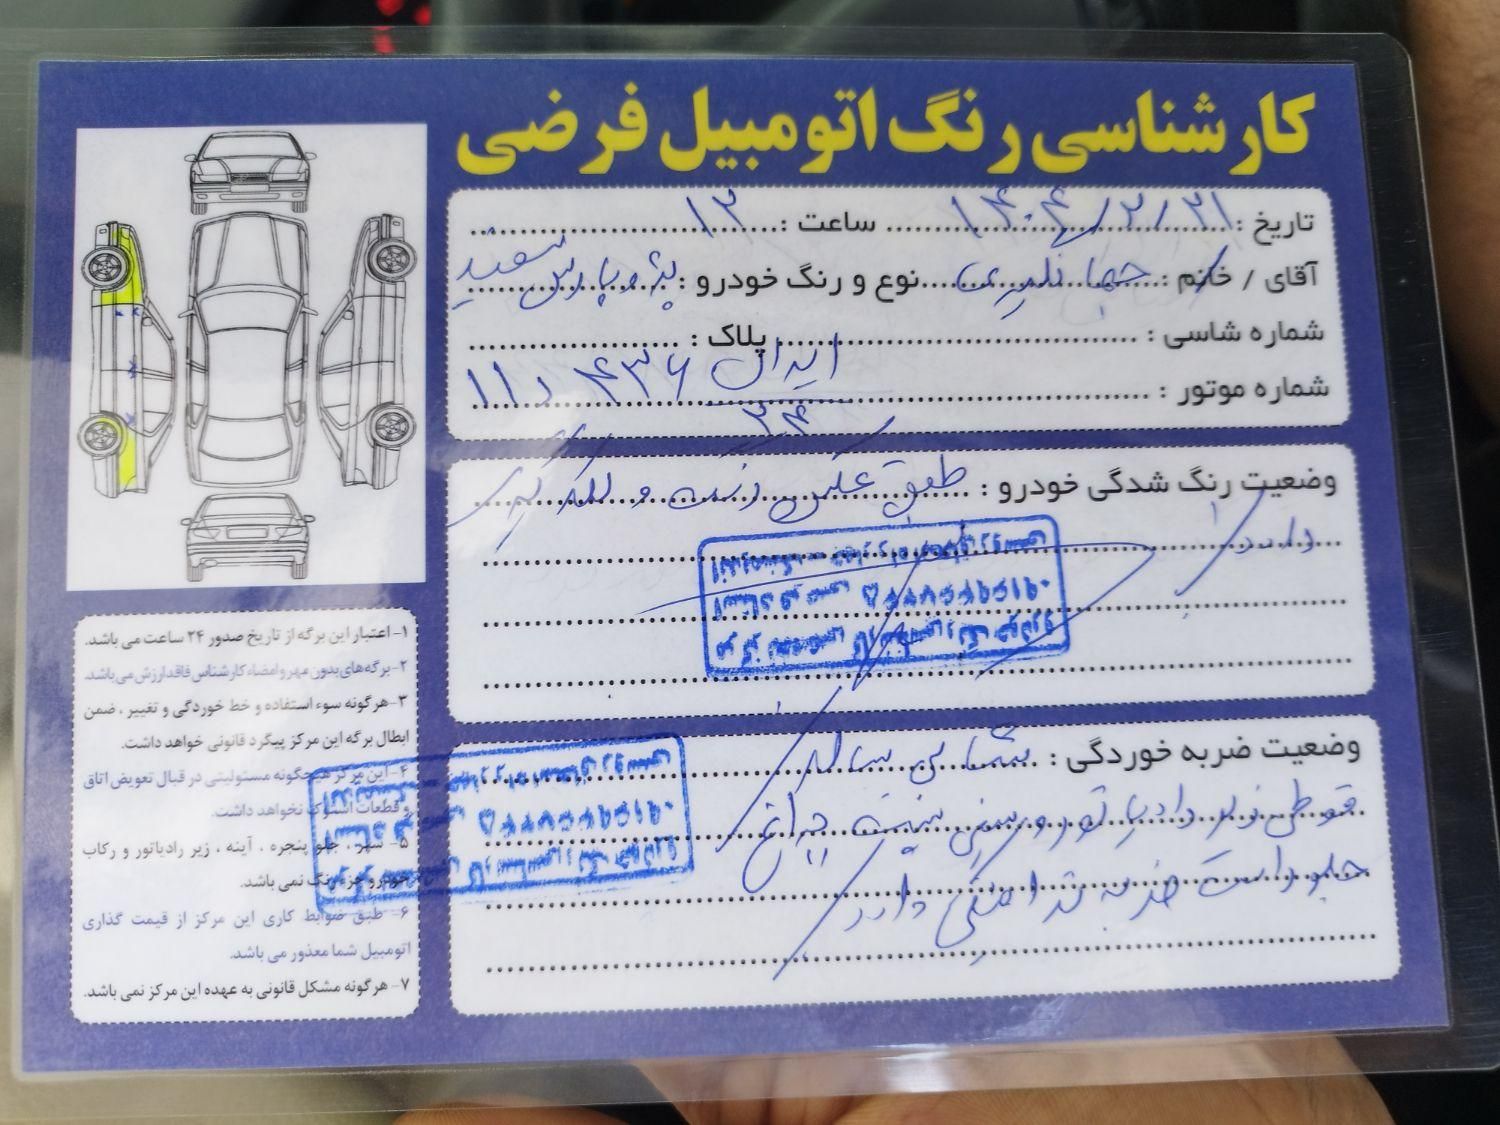 کارشناسی رنگ اتومبیل فرضی
تاریخ : ۱۴۰۴/۲/۲۱ ساعت : ۱۲
آقای / خانم : نوع و رنگ خودرو : پژو پارس سفید
شماره شاسی : پلاک : ایران
شماره موتور : ۱۱ د ۴۳۶ ۲۴
وضعیت رنگ شدگی خودرو : طبق عکس رنگ و لکه گیری
دارد
مرکز تخصصی کارشناسی رنگ خودرو
استاد فرضی
وضعیت ضربه خوردگی : شاسی سالم
قوطی زیر رادیاتور و سینی پشت چراغ
جلو راست ضربه تراکمی دارد
۱- اعتبار این برگه از تاریخ صدور ۲۴ ساعت می باشد.
۲- برگه های بدون مهر و امضاء کارشناس فاقد ارزش می باشد.
۳- هر گونه سوء استفاده و خط خوردگی و تغییر ، ضمن
ابطال برگه این مرکز پیگرد قانونی خواهد داشت.
۴- این مرکز هیچگونه مسئولیتی در قبال تعویض اتاق
و قطعات استوک نخواهد داشت.
۵- سپر ، جلو پنجره ، آینه ، زیر رادیاتور و رکاب
خودرو جزء رنگ نمی باشد.
۶- طبق ضوابط کاری این مرکز از قیمت گذاری
اتومبیل شما معذور می باشد.
۷- هر گونه مشکل قانونی به عهده این مرکز نمی باشد.